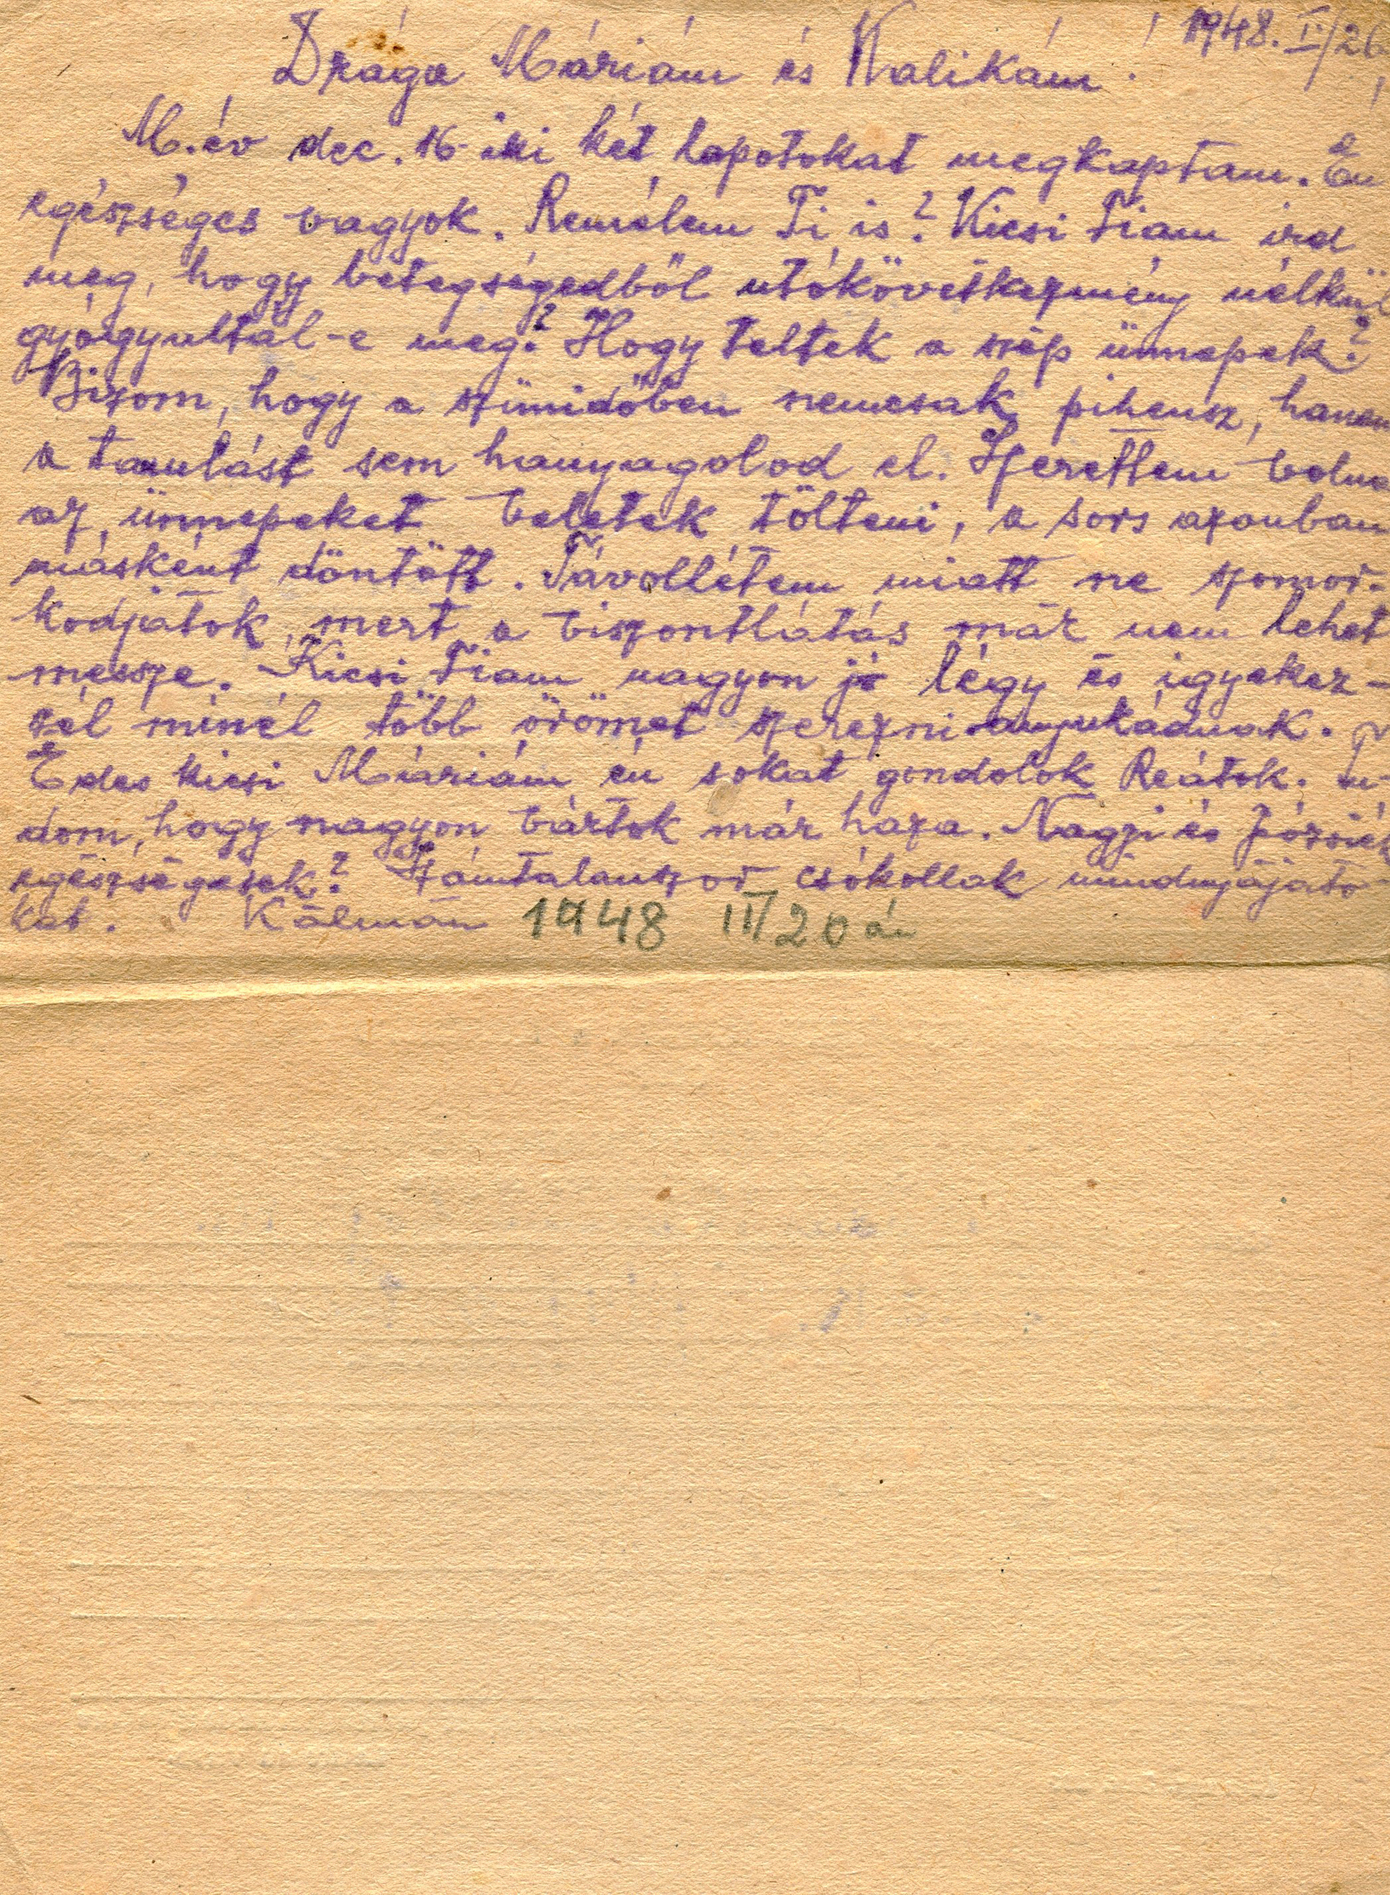 1948. I/26.
Drága Máriám és Kalikám!
M. év dec. 16-iki két lapotokat megkaptam. Én
egészséges vagyok. Remélem Ti is? Kicsi Fiam ird
meg, hogy betegségedből utókövetkezmény nélkül
gyógyultál-e meg? Hogy teltek a szép ünnepek?
Bizom, hogy a szünidőben nemcsak pihensz, hanem
a tanulást sem hanyagolod el. Szerettem volna
az ünnepeket veletek tölteni, a sors azonban
másként döntött. Távollétem miatt ne szomor-
kodjatok, mert a viszontlátás már nem lehet
messze. Kicsi Fiam nagyon jó légy és igyekez-
zél minél több örömet szerezni anyukádnak.
Édes kicsi Máriám én sokat gondolok Reátok. Tu-
dom, hogy nagyon vártok már haza. Nagyi és Józsiék
egészségesek? Számtalanszor csókollak mindnyájato-
kat. Kálmán 1948 II/20 án